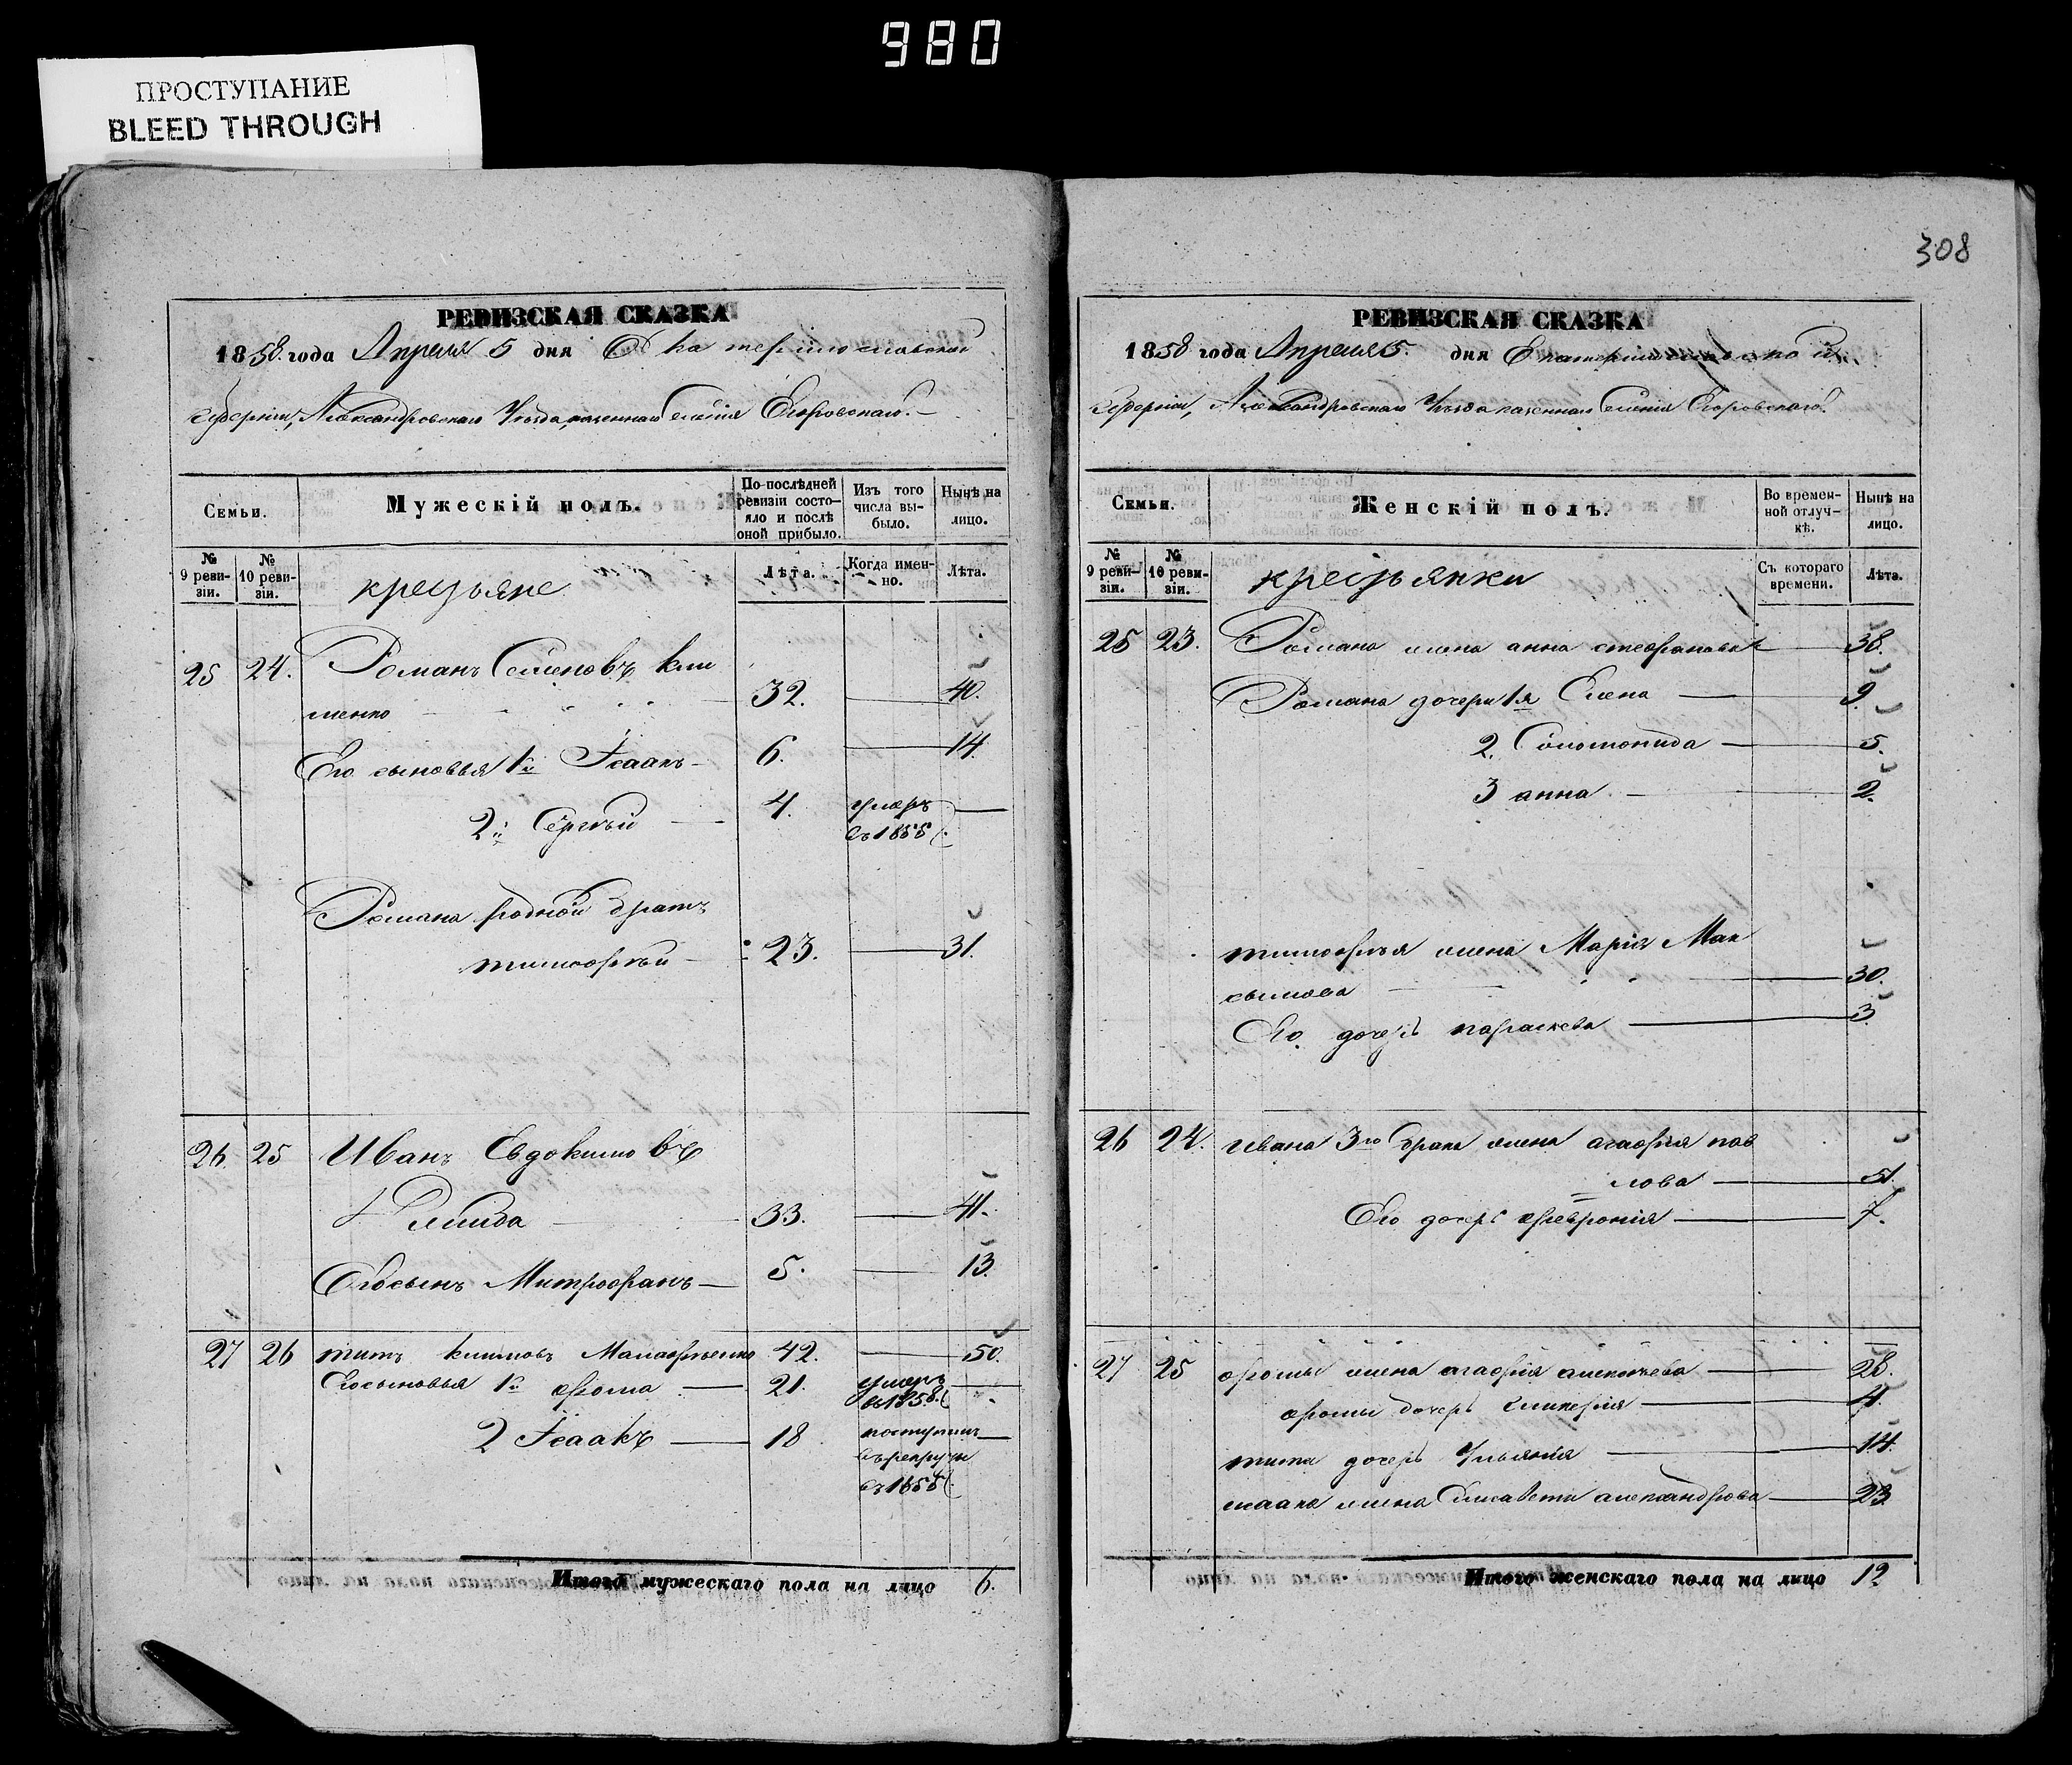 980
ПРОСТУПАНИЕ
BLEED THROUGH
РЕВИЗСКАЯ СКАЗКА
1858 года Апреля 5 дня Екатеринославской
Губерніи, Александровскаго Уезда, казеннаго селенія Егоровскаго.
Семьи.
Мужескій полъ.
По послѣдней ревизіи состо-
яло и послѣ
оной прибыло.
Изъ того
числа вы-
было.
Нынѣ на
лицо.
№
9 реви-
зіи.
№
10 реви-
зіи.
крестьяне
Лѣта.
Когда имен-
но.
Лѣта.
25 24. Романъ Семеновъ Кли
менко 32. 40.
Его сыновья 1й Ісаакъ 6. 14.
2й Сергѣй 4. умеръ
въ 1855
Романа родной братъ
тимофѣй 23. 31.
26. 25 Иванъ Евдокимовъ
33. 41.
Его сынъ Митрофанъ 5. 13.
27 26 титъ климовъ 42. 50.
Его сыновья 1й фома 21. умеръ
въ 1858.
2 Ісаакъ 18 поступилъ
въ рекруты
въ 1855
Итого мужескаго пола на лицо 6.
308
РЕВИЗСКАЯ СКАЗКА
1858 года Апреля 5. дня Екатеринославской
Губерніи, Александровскаго Уезда казеннаго Селенія Егоровскаго.
Семьи.
Женскій полъ.
Во времен-
ной отлуч-
кѣ.
Нынѣ на
лицо.
№
9 реви-
зіи.
№
10 реви-
зіи.
крестьянки
Съ котораго
времени.
Лѣта.
25 23. Романа жена анна стефанова 38.
Романа дочери 1я Елена 9.
2. Соломонида 5.
3 анна 2.
тимофѣя жена Марія Мак
сымова 30.
Его дочерь параскева 3
26 24. Ивана 3го брака жена агафія пав
лова 51.
Его дочерь февронія 7.
27 25 фомы жена агафія алексѣева 28.
фомы дочерь гликерія 4.
тита дочерь Ульянія 14.
исаака жена Елисавета александрова 23
Итого женскаго пола на лицо 12